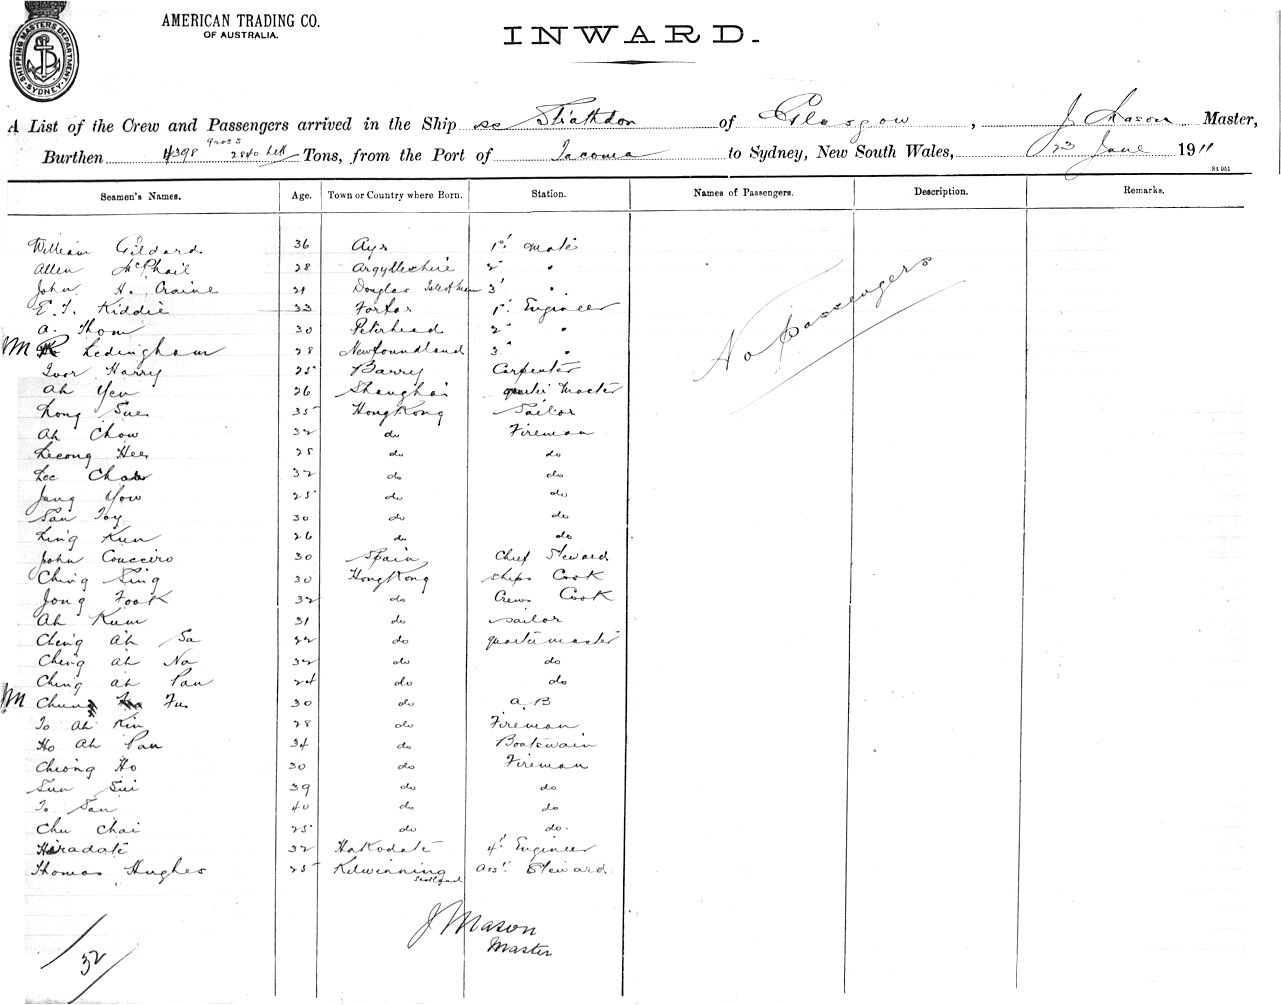 SHIPPING MASTERS DEPARTMENT. SYDNEY.
AMERICAN TRADING CO.
OF AUSTRALIA.
INWARD.
A List of the Crew and Passengers arrived in the Ship ss Strathdon of Glasgow, J Mason Master,
Burthen 4398 gross 2840 Nett Tons, from the Port of Tacoma to Sydney, New South Wales, 23 June 1911
St 951
Seamen's Names. Age. Town or Country where Born. Station. Names of Passengers. Description. Remarks.
William Gildard 36 Ayr 1st mate
Allen McPhail 28 Argylleshire 2d "
John H. Craine 21 Douglas Isle of Man 3d "
E. T. Kiddie 33 Forfar 1st Engineer
A. Thom 30 Peterhead 2d "
M Ledingham 28 Newfoundland 3d "
Ivor Harry 25 Barry Carpenter
Ah Yeu 26 Shanghai quarter Master
Long Sue 35 HongKong Sailor
Ah Chow 32 do Fireman
Leeong Hee 28 do do
Lee Chow 32 do do
Jang Yow 25 do do
San Toy 30 do do
Ling Kun 26 do do
John Couceiro 30 Spain Chief Steward
Ching Sing 30 HongKong ships Cook
Jong Fook 32 do Crews Cook
Ah Kum 31 do sailor
Ching Ah Sa 22 do quartermaster
Ching Ah Na 32 do do
Ching Ah Pau 24 do do
M Chung Fu 30 do A B
To Ah Kin 28 do Fireman
Ho Ah Pau 34 do Boatswain
Cheong Ho 30 do Fireman
Sun Sui 39 do do
To San 40 do do
Chu Chai 25 do do.
Hiradate 32 Hakodate 4th Engineer
Thomas Hughes 25 Kilwinning Scotland Asst. Steward
No Passengers
J Mason
Master
32